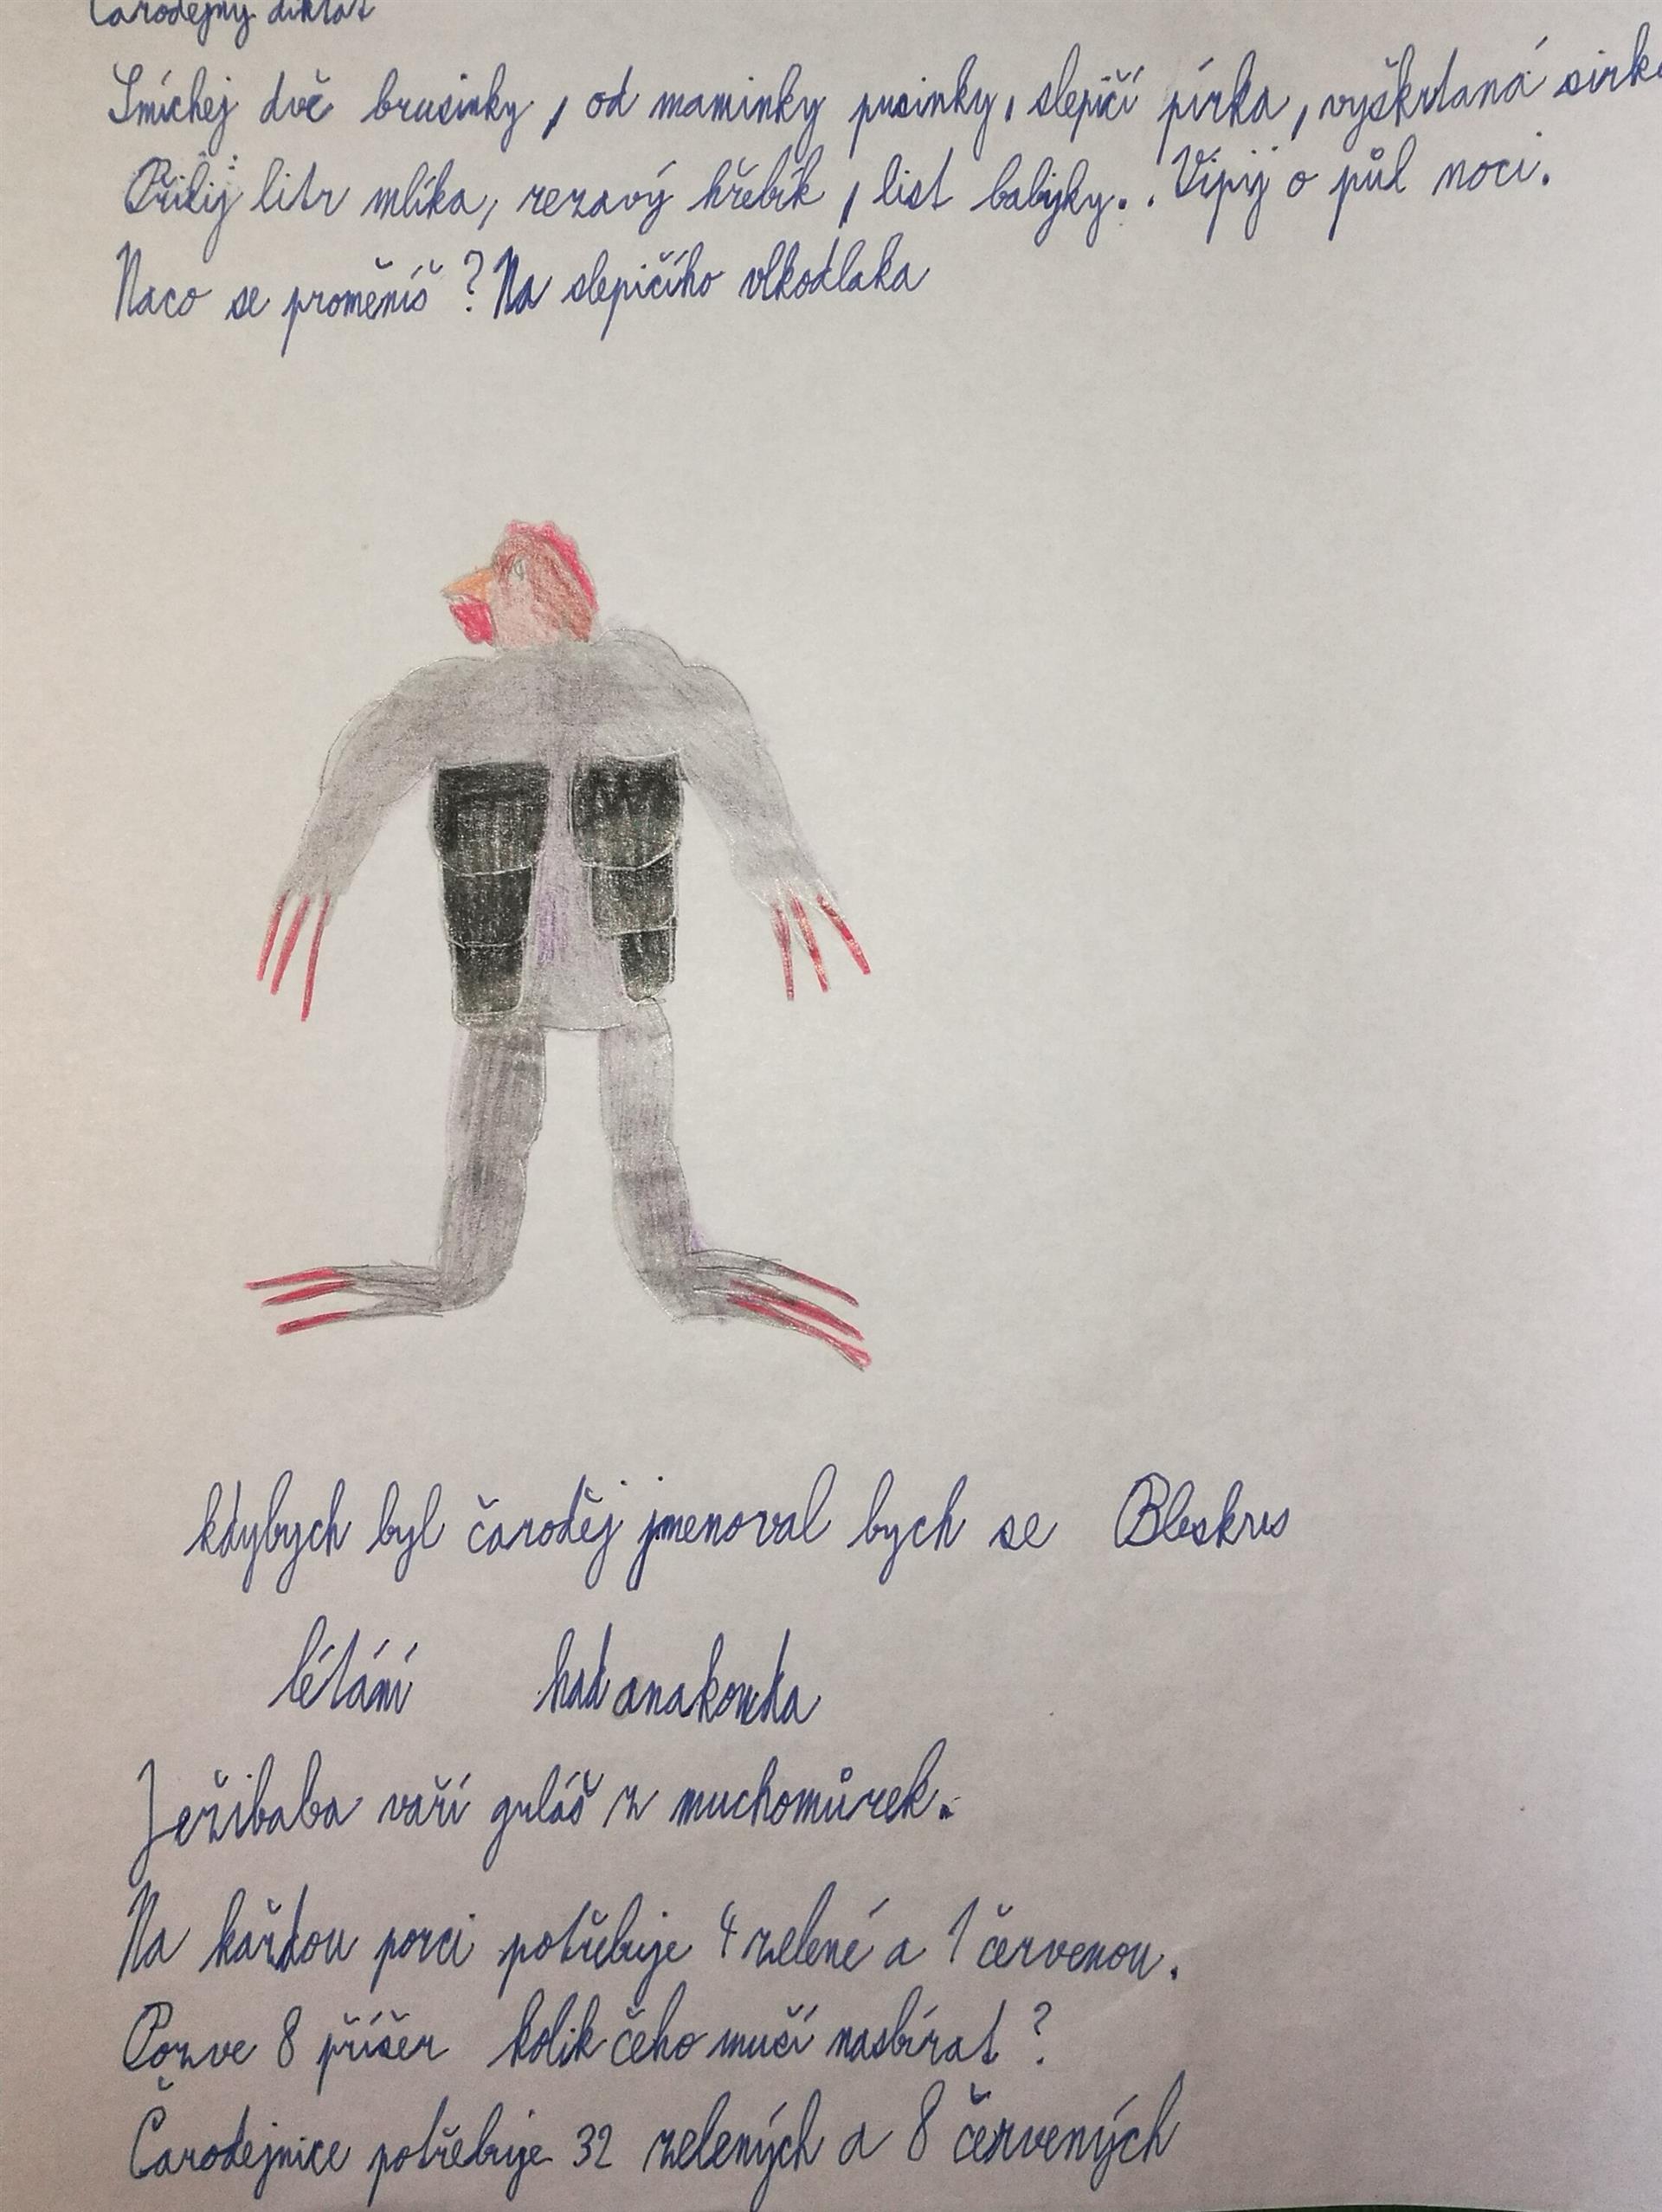 Čarodejný diktát
Smíchej dvě brusinky, od maminky pusinky, slepičí pírka, vyškrtaná sirka
Přilij litr mlíka, rezavý hřebík, list babyky.. Vipij o půl noci.
Naco se proměníš? Na slepičího vlkodlaka
kdybych byl čaroděj jmenoval bych se Bleskus
létání had anakonda
Ježibaba vaří guláš z muchomůrek.
Na každou porci potřebuje 4 zelené a 1 červenou.
Pozve 8 příšer kolik čeho mučí nasbírat?
Čarodejnice potřebuje 32 zelených a 8 červených